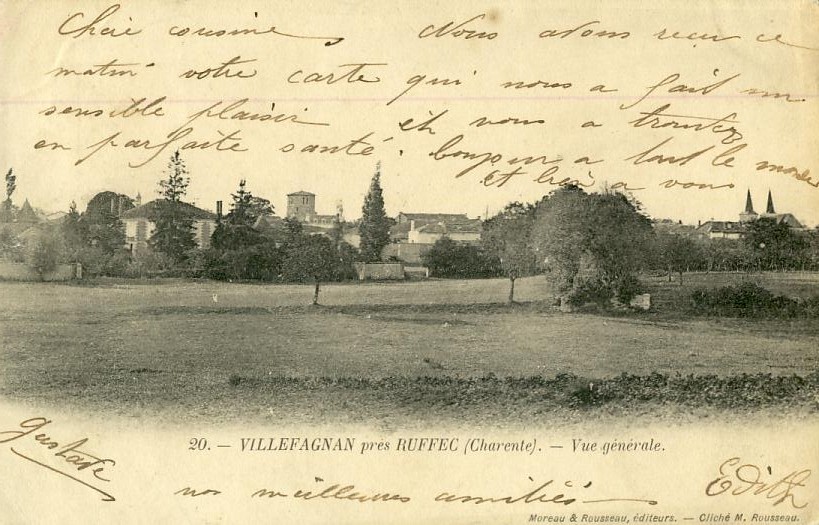 Chère cousine Nous avons reçu ce
matin votre carte qui nous a fait un
sensible plaisir et vous a trouvez
en parfaite santé. bonjour a tout le monde
Et bien a vous
20. — VILLEFAGNAN près RUFFEC (Charente). — Vue générale.
Gustave
nos meilleures amitiés
Edith
Moreau & Rousseau, éditeurs. — Cliché M. Rousseau.